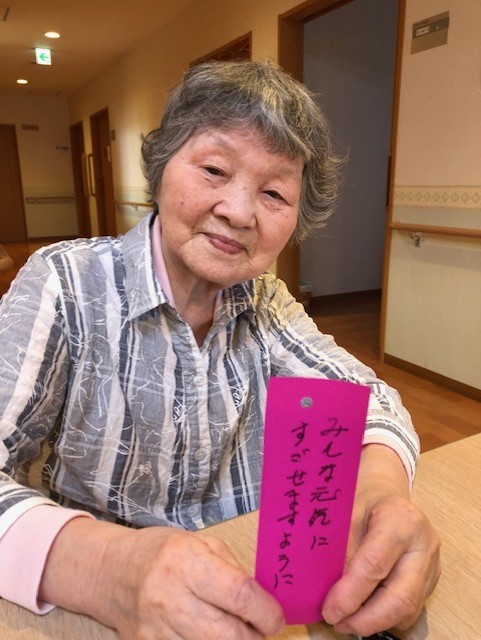 みんな元気に
すごせますように